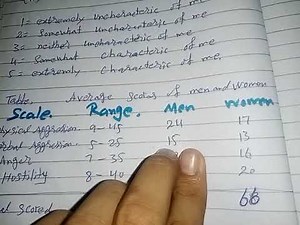 1= extremely uncharacteric of me
2= Somewhat uncharacteric of me
3= neither uncharacteric of me
4= Somewhat characteric of me
5= extremely characteric of me.
Table. Average Scores of men and women
Scale. Range. Men women
Physical Aggression 9-45 24 17
Verbal Aggression 5-25 15 13
Anger 7-35 16
Hostility 8-40 20
Scored 66